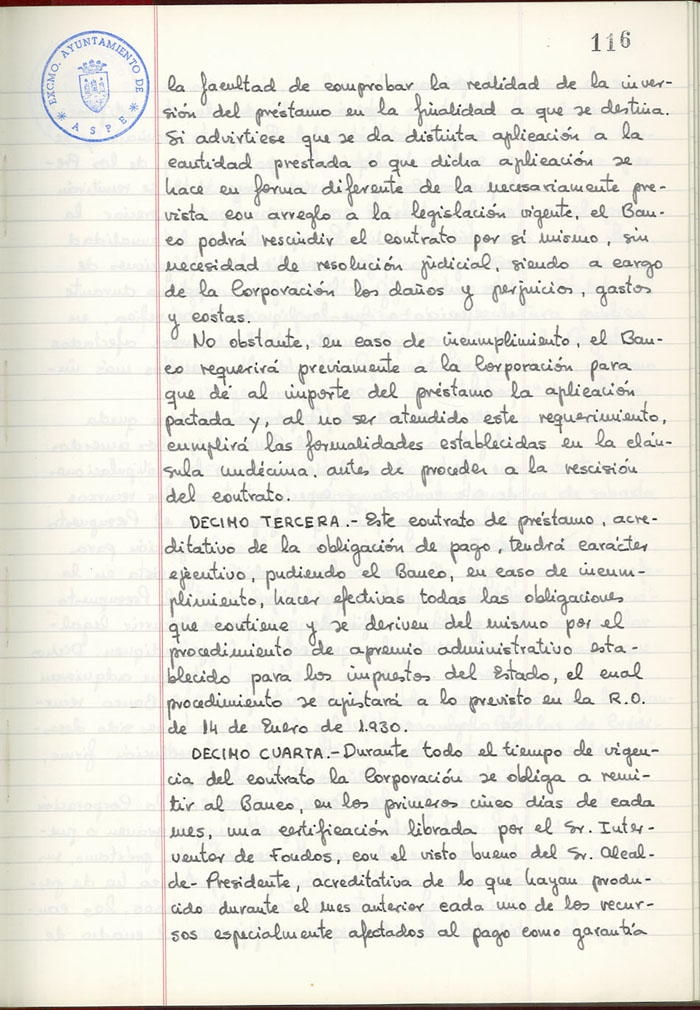 116
EXCMO. AYUNTAMIENTO DE
* ASPE *
la facultad de comprobar la realidad de la inver-
sión del préstamo en la finalidad a que se destina.
Si advirtiese que se da distinta aplicación a la
cantidad prestada o que dicha aplicación se
hace en forma diferente de la necesariamente pre-
vista con arreglo a la legislación vigente, el Ban-
co podrá rescindir el contrato por sí mismo, sin
necesidad de resolución judicial, siendo a cargo
de la Corporación los daños y perjuicios, gastos
y costas.
No obstante, en caso de incumplimiento, el Ban-
co requerirá previamente a la Corporación para
que dé al importe del préstamo la aplicación
pactada y, al no ser atendido este requerimiento,
cumplirá las formalidades establecidas en la cláu-
sula undécima, antes de proceder a la rescisión
del contrato.
DECIMO TERCERA.- Este contrato de préstamo, acre-
ditativo de la obligación de pago, tendrá carácter
ejecutivo, pudiendo el Banco, en caso de incum-
plimiento, hacer efectivas todas las obligaciones
que contiene y se deriven del mismo por el
procedimiento de apremio administrativo esta-
blecido para los impuestos del Estado, el cual
procedimiento se ajustará a lo previsto en la R.O.
de 14 de Enero de 1.930.
DECIMO CUARTA.- Durante todo el tiempo de vigen-
cia del contrato la Corporación se obliga a remi-
tir al Banco, en los primeros cinco días de cada
mes, una certificación librada por el Sr. Inter-
ventor de Fondos, con el visto bueno del Sr. Alcal-
de-Presidente, acreditativa de lo que hayan produ-
cido durante el mes anterior cada uno de los recur-
sos especialmente afectados al pago como garantía